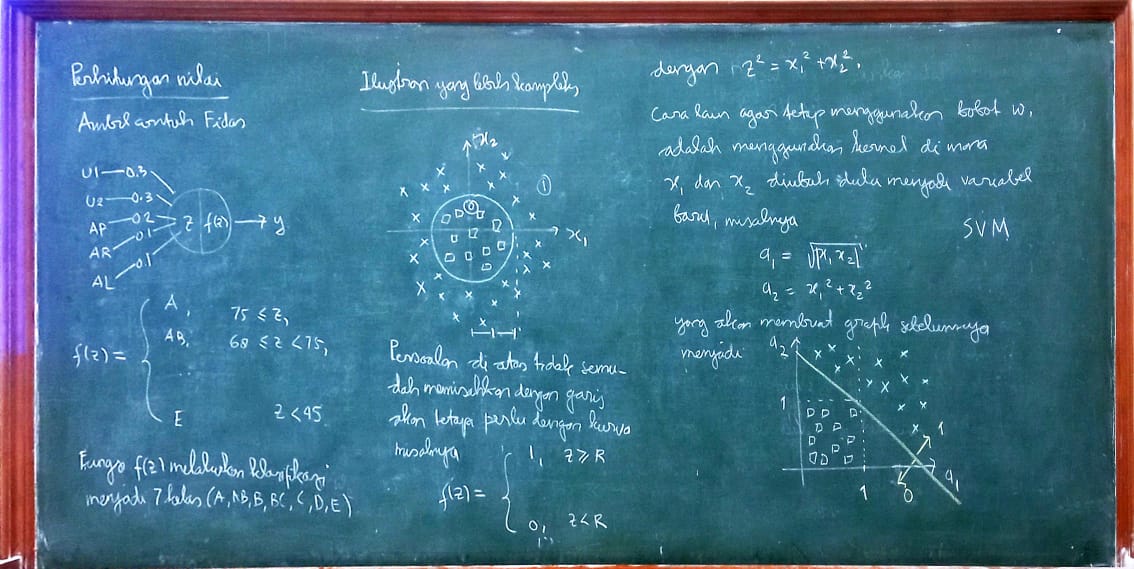 Perhitungan nilai
Ambil contoh Fidas
U1 0.3
U2 0.3
AP 0.2
AR 0.1
AL 0.1
z f(z) → y
f(z) = {
A, 75 ≤ z,
AB, 68 ≤ z < 75,
E z < 45
Fungsi f(z) melakukan klasifikasi
menjadi 7 kelas (A, AB, B, BC, C, D, E)
Ilustrasi yang lebih kompleks
x2
1
0
x1
Persoalan di atas tidak semu-
dah memisahkan dengan garis
akan tetapi perlu dengan kurva
misalnya
f(z) = {
1, z ≥ R
0, z < R
dengan z² = x₁² + x₂².
Cara lain agar tetap menggunakan bobot w,
adalah menggunakan kernel di mana
x₁ dan x₂ diubah dulu menjadi variabel
baru, misalnya
SVM
q₁ = √|x₁ x₂|
q₂ = x₁² + x₂²
yang akan membuat graph sebelumnya
menjadi
q₂
1
1
0
1
q₁